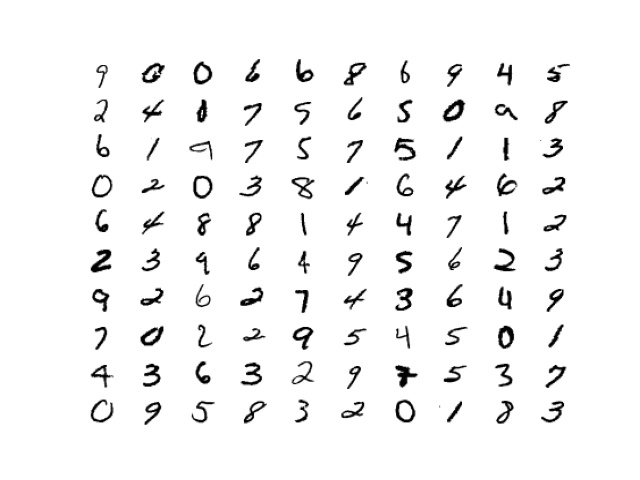 9 0 0 6 6 8 6 9 4 5
2 4 0 7 5 6 5 0 9 8
6 1 9 7 5 7 5 1 1 3
0 2 0 3 8 1 6 4 6 2
6 4 8 8 1 4 4 7 1 2
2 3 9 6 4 9 5 6 2 3
9 2 6 2 7 4 3 6 4 9
7 0 2 2 9 5 4 5 0 1
4 3 6 3 2 9 7 5 3 7
0 9 5 8 3 2 0 1 8 3